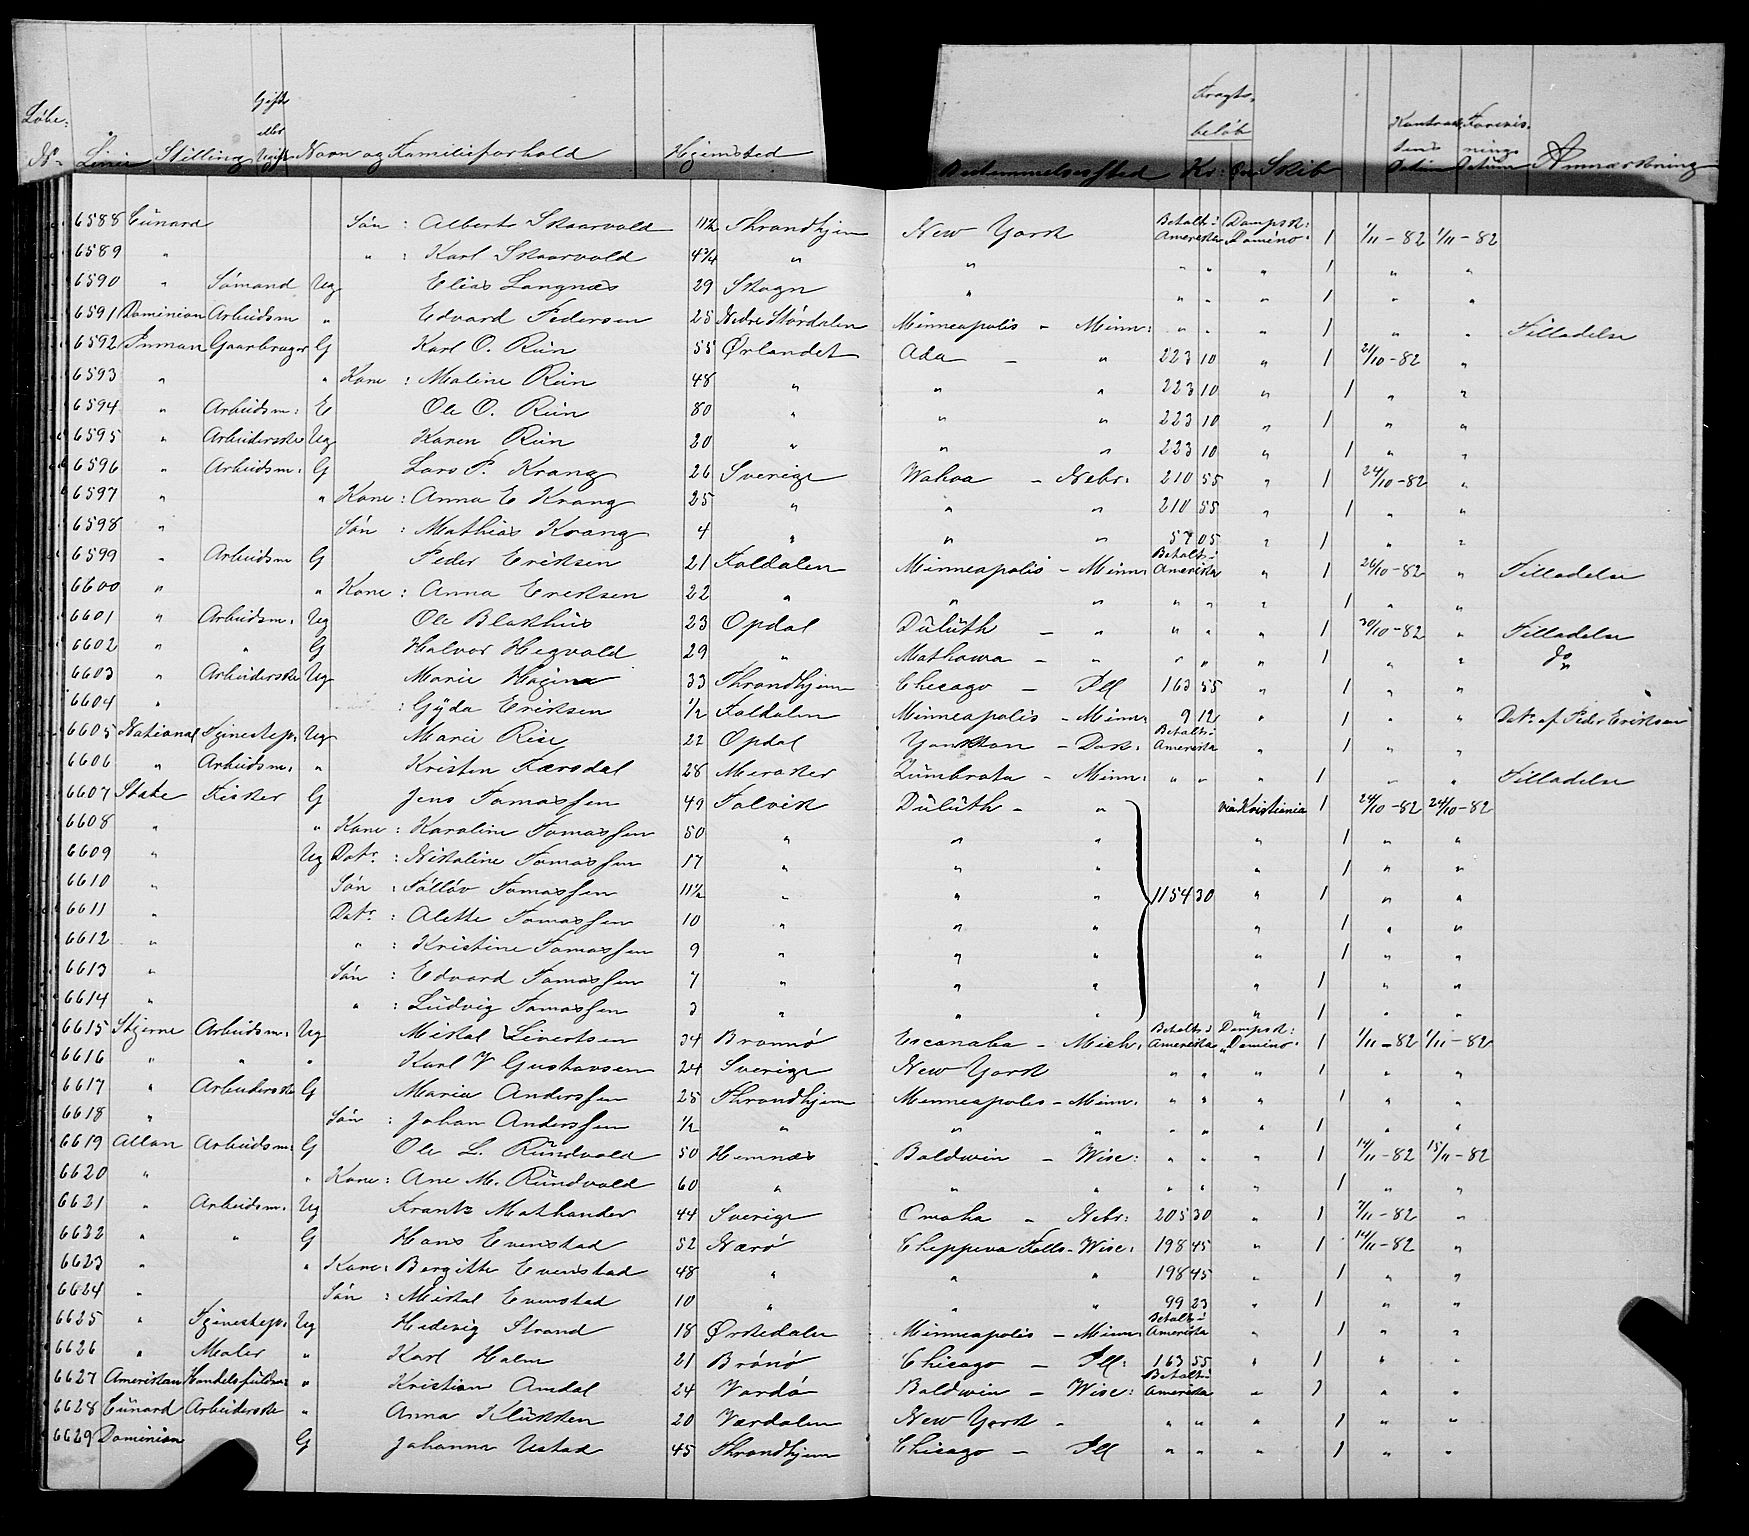 Løbe- Nr. Linie Stilling Gift eller Ugift Navn og Familieforhold Hjemsted Bestemmelsessted Fragtbeløb Kr: Øre Skib Datum Datum Anmærkning
6588 Cunard Søn : Albert Skaarvold 11½ Throndhjem New York Betalt i Amerika Dampsk: Domino 1 1/11-82 1/11-82
6589 " " : Karl Skaarvold 4¾ " " " " " 1 " "
6590 " Sømand Ug Elias Langnæs 29 Skogn " " " " 1 " "
6591 Dominion Arbeidsm " Edvard Pedersen 25 Nedre Stördalen Minneapolis - Minn: " " " 1 " " Tilladelse
6592 Inman Gaarbruger G Karl O. Rein 55 Ørlandet Ada - " 223 10 " 1 21/10-82 "
6593 " " Kone : Maline Rein 48 " " " 223 10 " 1 " "
6594 " Arbeidsm: E Ole O. Rein 80 " " " 223 10 " 1 " "
6595 " Arbeiderske Ug Karen Rein 20 " " " 223 10 " 1 " "
6596 " Arbeidsm: G Lars P. Krang 26 Sverige Wahoa - Nebr: 210 55 " 1 24/10-82 "
6597 " " Kone : Anna E Krang 25 " " " 210 55 " 1 " "
6598 " Søn : Mathias Krang 4 " " " 57 05 " 1 " "
6599 " Arbeidsm G Peder Eriksen 21 Foldalen Minneapolis - Minn: Betalt i Amerika " 1 26/10-82 " Tilladelse
6600 " " Kone : Anna Eriksen 22 " " " " " " 1 " "
6601 " Arbeidsm: Ug Ole Blakhus 23 Opdal Duluth - " " " " 1 30/10-82 " Tilladelse
6602 " " G Halvor Hegvold 29 " Mathowa - " " " " 1 " " do
6603 " Arbeiderske Ug Marie Hagen 33 Throndhjem Chicago - Ill 163 55 " 1 " "
6604 " : Gyda Eriksen ½ Foldalen Minneapolis - Minn: 9 12 " 1 " " Dat: af Peder Eriksen
6605 National Tjenestep: Ug Marie Rise 22 Opdal Yankton - Dak: Betalt i Amerika " 1 " "
6606 " Arbeidsm: " Kristen Færsdal 28 Meraker Zumbrota - Minn: " " " 1 " " Tilladelse
6607 State Fisker G Jens Tomassen 49 Talvik Duluth - " via Kristiania 1 24/10-82 24/10-82
6608 " " Kone : Karoline Tomassen 50 " " " " 1 " "
6609 " Ug Datr : Nikoline Tomassen 17 " " " " 1 " "
6610 " Søn : Tolløv Tomassen 11½ " " " 1154 30 " 1 " "
6611 " Datr : Alette Tomassen 10 " " " " 1 " "
6612 " " : Kristine Tomassen 9 " " " " 1 " "
6613 " Søn : Edvard Tomassen 7 " " " " 1 " "
6614 " " : Ludvig Tomassen 3 " " " " 1 " "
6615 Stjerne Arbeidsm: Ug Mikal Sivertsen 34 Bronnø Escanaba - Mich: Betalt i Amerika Dampsk: "Domino" 1 1/11-82 1/11-82
6616 " " " Karl V Gustavsen 24 Sverige New York " " " 1 " "
6617 " Arbeiderske G Marie Anderssen 25 Throndhjem Minneapolis - Minn: " " " 1 " "
6618 " Søn : Johan Anderssen ½ " " " " " " 1 " "
6619 Allan Arbeidsm: G Ole L. Rundvold 50 Hemnæs Baldwin - Wisc: " " " 1 14/11-82 15/11-82
6620 " " Kone : Ane M. Rundvold 60 " " " " " " 1 " "
6621 " Arbeidsm: Ug Frants Mathander 44 Sverige Omaha - Nebr: 205 30 " 1 7/11-82 "
6622 " " G Hans Evenstad 52 Nærø Cheppeva Falls - Wisc: 198 45 " 1 14/11-82 "
6623 " " Kone : Bergitte Evenstad 48 " " " 198 45 " 1 " "
6624 " Søn : Mikal Evenstad 10 " " " 99 23 " 1 " "
6625 " Tjenestep: Ug Hedevig Strand 18 Ørkedalen Minneapolis - Minn: Betalt i Amerika " 1 " "
6626 " Maler " Karl Holm 21 Brönö Chicago - Ill: 163 55 " 1 " "
6627 Amerikan " Kristian Amdal 24 Vardø Baldwin - Wisc: Betalt i Amerika " 1 " "
6628 Cunard Arbeiderske " Anna Klukken 20 Værdalen New York - " " " 1 " "
6629 Dominion G Johanna Ustad 45 Throndhjem Chicago - Ill " " " 1 " "